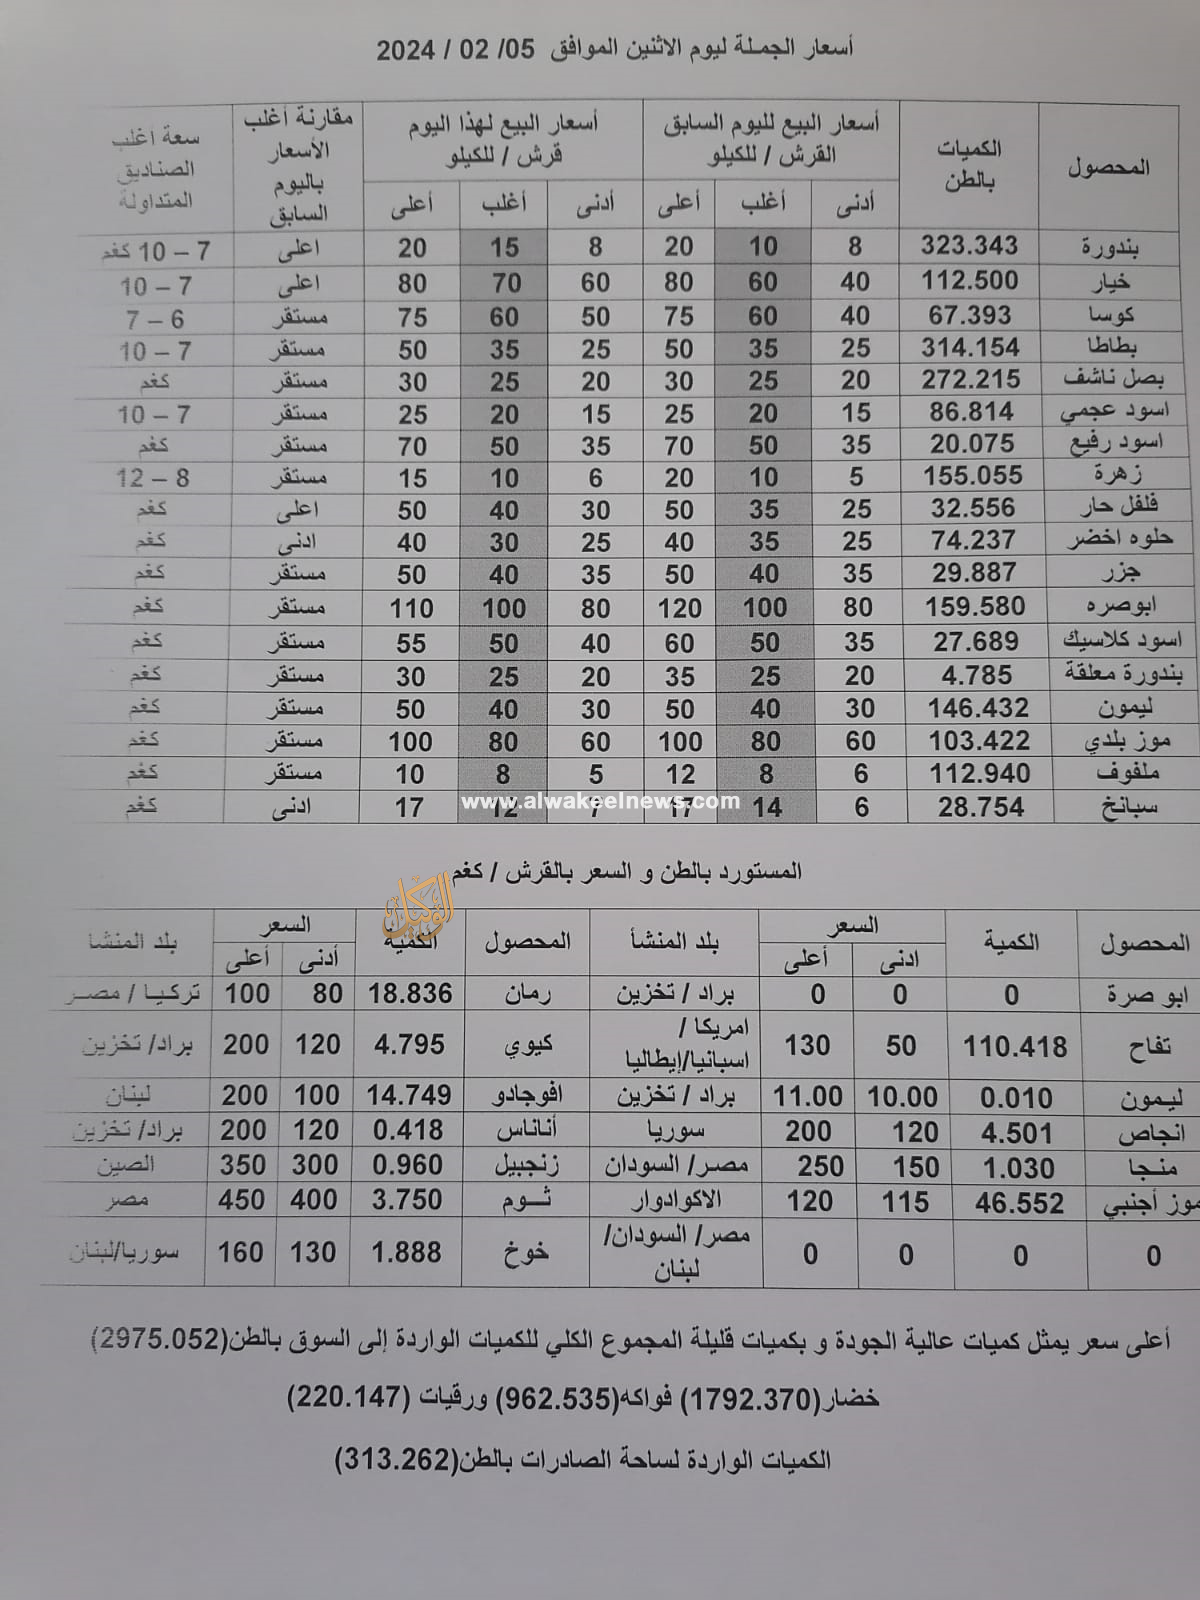 أسعار الجملة ليوم الاثنين الموافق 05/ 02 / 2024
المحصول الكميات بالطن أسعار البيع لليوم السابق القرش / للكيلو أسعار البيع لهذا اليوم قرش / للكيلو مقارنة أغلب الأسعار باليوم السابق سعة اغلب الصناديق المتداولة
أدنى أغلب أعلى أدنى أغلب أعلى
بندورة 323.343 8 10 20 8 15 20 اعلى 7 – 10 كغم
خيار 112.500 40 60 80 60 70 80 اعلى 7 – 10
كوسا 67.393 40 60 75 50 60 75 مستقر 6 – 7
بطاطا 314.154 25 35 50 25 35 50 مستقر 7 – 10
بصل ناشف 272.215 20 25 30 20 25 30 مستقر كغم
اسود عجمي 86.814 15 20 25 15 20 25 مستقر 7 – 10
اسود رفيع 20.075 35 50 70 35 50 70 مستقر كغم
زهرة 155.055 5 10 20 6 10 15 مستقر 8 – 12
فلفل حار 32.556 25 35 50 30 40 50 اعلى كغم
حلوه اخضر 74.237 25 35 40 25 30 40 ادنى كغم
جزر 29.887 35 40 50 35 40 50 مستقر كغم
ابوصره 159.580 80 100 120 80 100 110 مستقر كغم
اسود كلاسيك 27.689 35 50 60 40 50 55 مستقر كغم
بندورة معلقة 4.785 20 25 35 20 25 30 مستقر كغم
ليمون 146.432 30 40 50 30 40 50 مستقر كغم
موز بلدي 103.422 60 80 100 60 80 100 مستقر كغم
ملفوف 112.940 6 8 12 5 8 10 مستقر كغم
سبانخ 28.754 6 14 17 7 12 17 ادنى كغم
www.alwakeelnews.com
المستورد بالطن و السعر بالقرش / كغم
الوكيل
المحصول الكمية السعر بلد المنشأ المحصول الكمية السعر بلد المنشأ
ادنى أعلى أدنى أعلى
ابو صرة 0 0 0 براد / تخزين رمان 18.836 80 100 تركيا / مصر
تفاح 110.418 50 130 امريكا / اسبانيا/إيطاليا كيوي 4.795 120 200 براد/ تخزين
ليمون 0.010 10.00 11.00 براد / تخزين افوجادو 14.749 100 200 لبنان
انجاص 4.501 120 200 سوريا أناناس 0.418 120 200 براد/ تخزين
منجا 1.030 150 250 مصر/ السودان زنجبيل 0.960 300 350 الصين
موز أجنبي 46.552 115 120 الاكوادوار ثوم 3.750 400 450 مصر
0 0 0 0 مصر/ السودان/ لبنان خوخ 1.888 130 160 سوريا/لبنان
أعلى سعر يمثل كميات عالية الجودة و بكميات قليلة المجموع الكلي للكميات الواردة إلى السوق بالطن(2975.052)
خضار(1792.370) فواكه(962.535) ورقيات (220.147)
الكميات الواردة لساحة الصادرات بالطن(313.262)